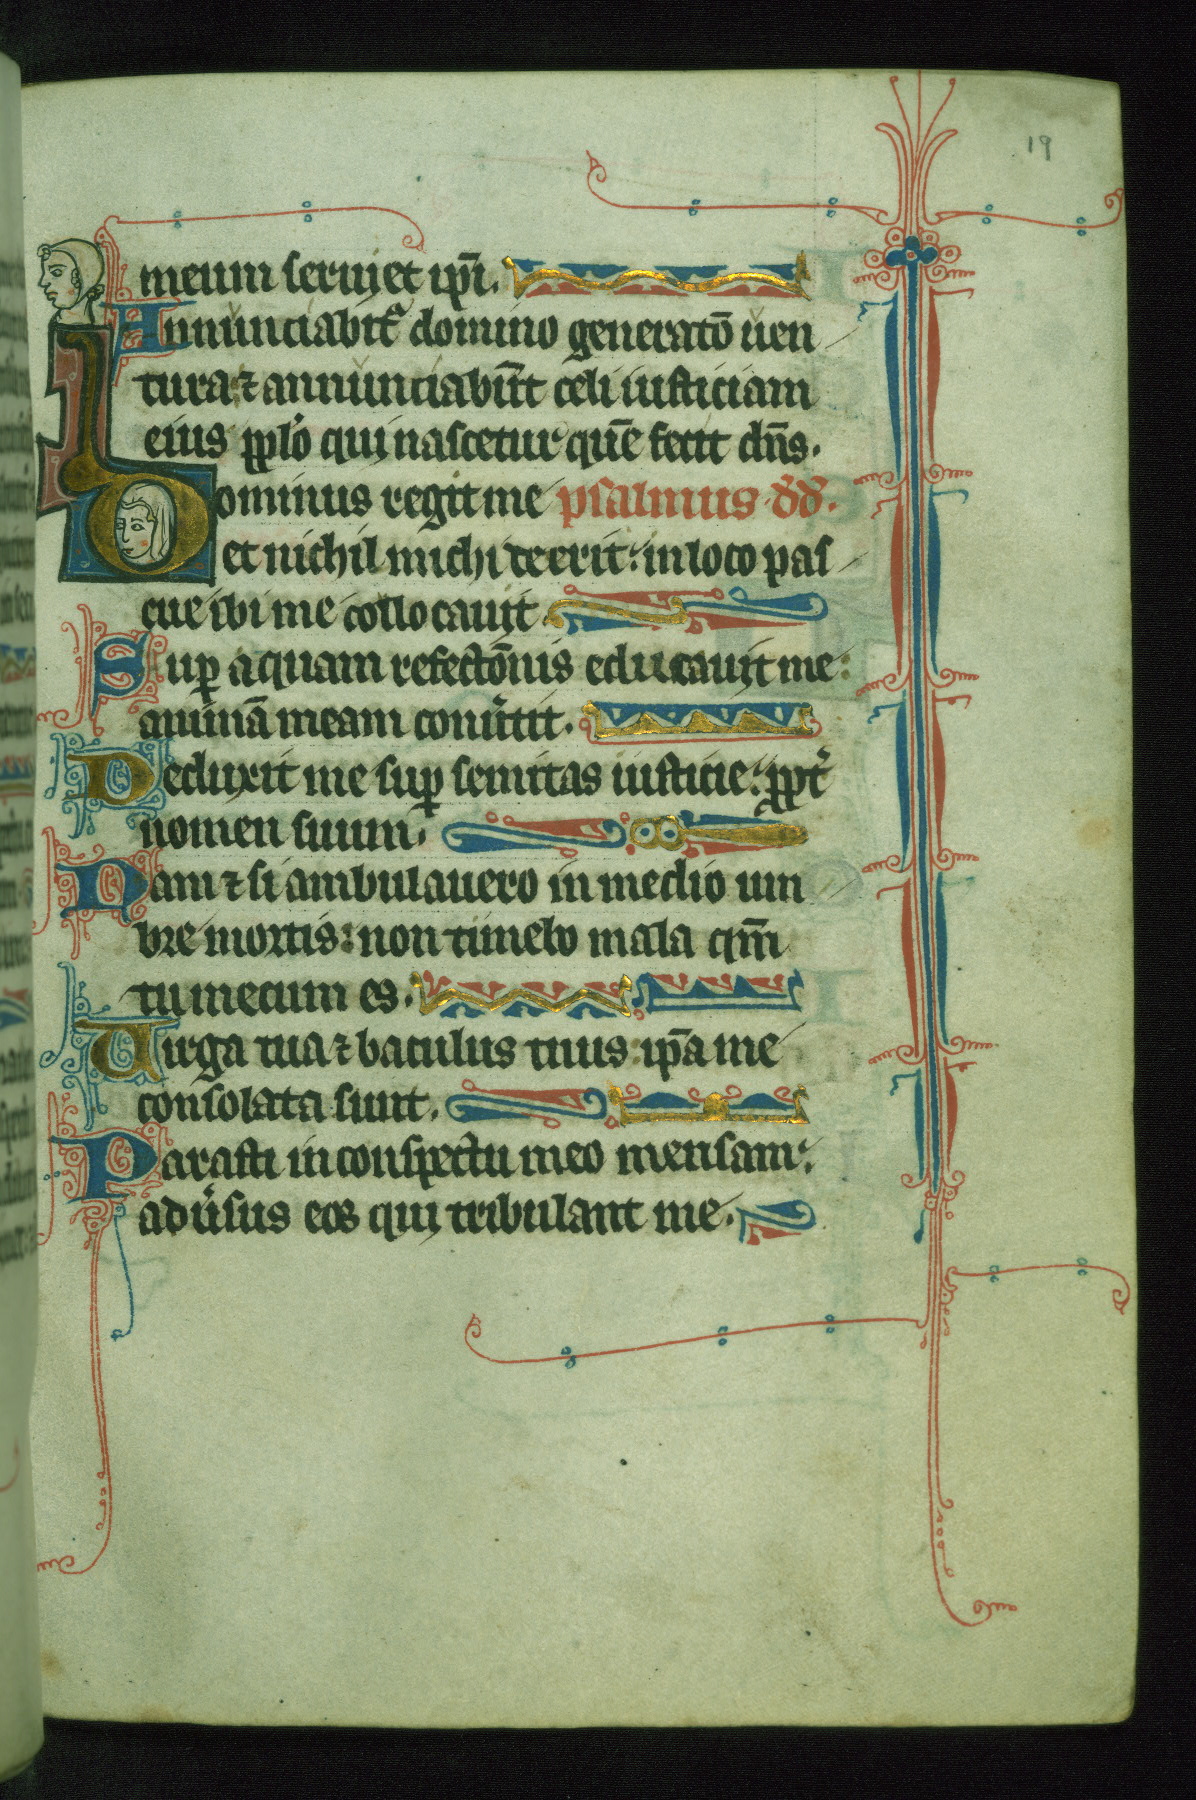 19
meum seruiet ip̅i.
Annunciabit᷑ domino generatō uen
tura ⁊ annunciabūt celi iusticiam
eius pplo qui nascetur quē fecit dn̄s.
Dominus regit me psalmus dd.
et nichil michi deerit: in loco pas
cue ibi me collocauit.
Suꝑ aquam refectōnis educauit me:
animā meam conu͛tit.
Deduxit me suꝑ semitas iusticie: ppt͛
nomen suum.
Nam ⁊ si ambulauero in medio um
bre mortis: non timebo mala qm̄
tu mecum es.
Uirga tua ⁊ baculus tuus ip̄a me
consolata sunt.
Parasti in conspectu meo mensam:
adu͛sus eos qui tribulant me.